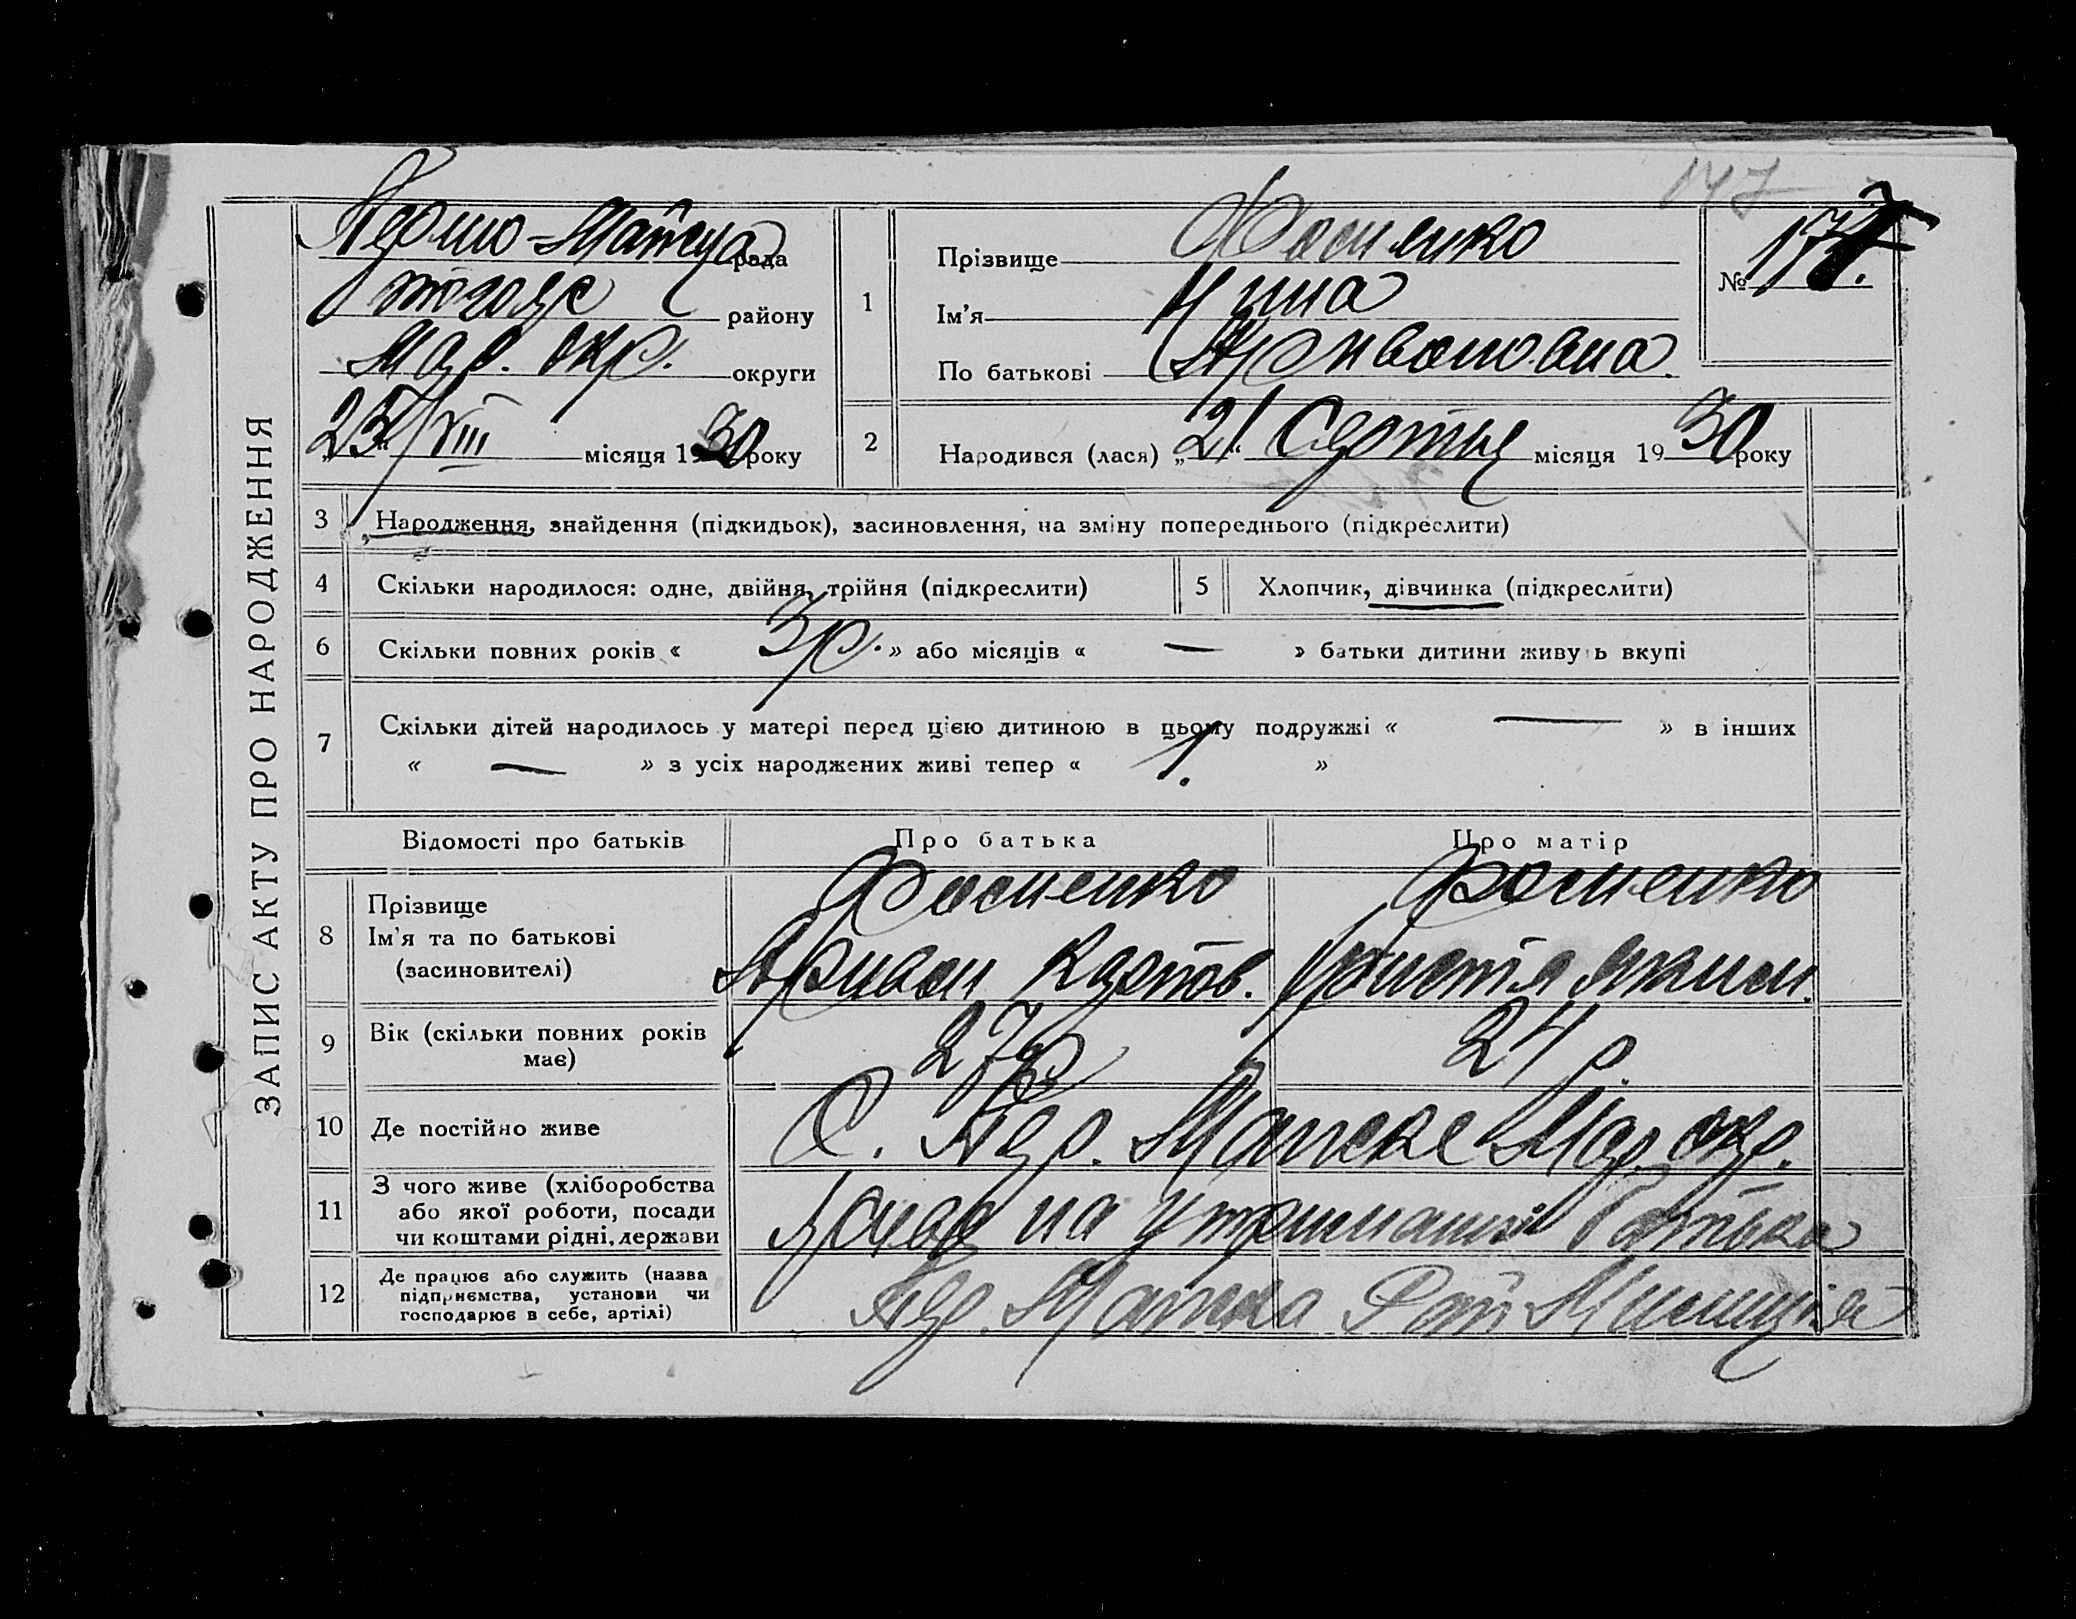 ЗАПИС АКТУ ПРО НАРОДЖЕННЯ
147
Першо-Майська рада
тогож району
Мар. окр. округи
„25“/VIII місяця 1930 року
1
Прізвище Фоменко
Ім'я Нина
По батькові
№
2
Народився (лася) „21“ Серпня місяця 1930 року
3 Народження, знайдення (підкидьок), засиновлення, на зміну попереднього (підкреслити)
4 Скільки народилося: одне, двійня, трійня (підкреслити)
5 Хлопчик, дівчинка (підкреслити)
6 Скільки повних років « 3 р. » або місяців « — » батьки дитини живуть вкупі
7 Скільки дітей народилось у матері перед цією дитиною в цьому подружжі « — » в інших
« — » з усіх народжених живі тепер « 1. »
Відомості про батьків Про батька Про матір
8 Прізвище
Ім'я та по батькові
(засиновителі)
Фоменко
Карпов.
Фоменко
Христя Яким.
9 Вік (скільки повних років
має)
27 р
24 р.
10 Де постійно живе
С. Пер. Майське Мар. окр.
11 З чого живе (хліборобства
або якої роботи, посади
чи коштами рідні, держави
на утриманні батька
12 Де працює або служить (назва
підприємства, установи чи
господарює в себе, артілі)
Пер. Майська Рай Милиція